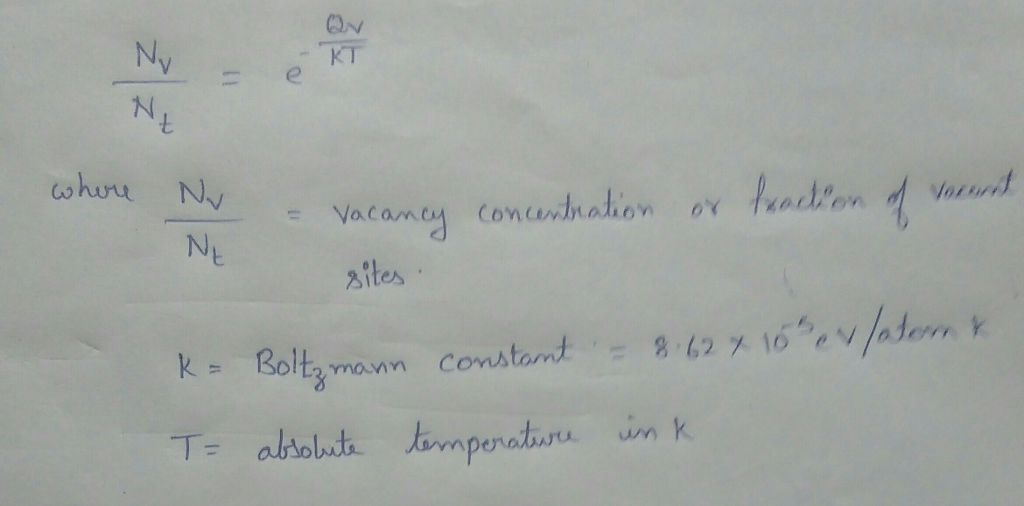 Nv / Nt = e^-Qv/KT
where Nv / Nt = vacancy concentration or fraction of vacant
sites.
K = Boltzmann constant = 8.62 x 10^-5 eV/atom K
T = absolute temperature in K